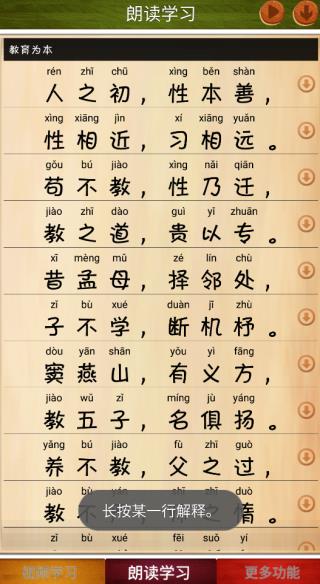 朗读学习
教育为本
rén zhī chū xìng běn shàn
人之初，性本善，
xìng xiāng jìn xí xiāng yuǎn
性相近，习相远。
gǒu bú jiào xìng nǎi qiān
苟不教，性乃迁，
jiào zhī dào guì yǐ zhuān
教之道，贵以专。
xī mèng mǔ zé lín chù
昔孟母，择邻处，
zǐ bù xué duàn jī zhù
子不学，断机杼。
dòu yān shān yǒu yì fāng
窦燕山，有义方，
jiào wǔ zǐ míng jù yáng
教五子，名俱扬。
yǎng bú jiào fù zhī guò
养不教，父之过，
jiào bù
教不 惰。
长按某一行解释。
zǐ bù xué fēi suǒ yí
朗读学习
更多功能